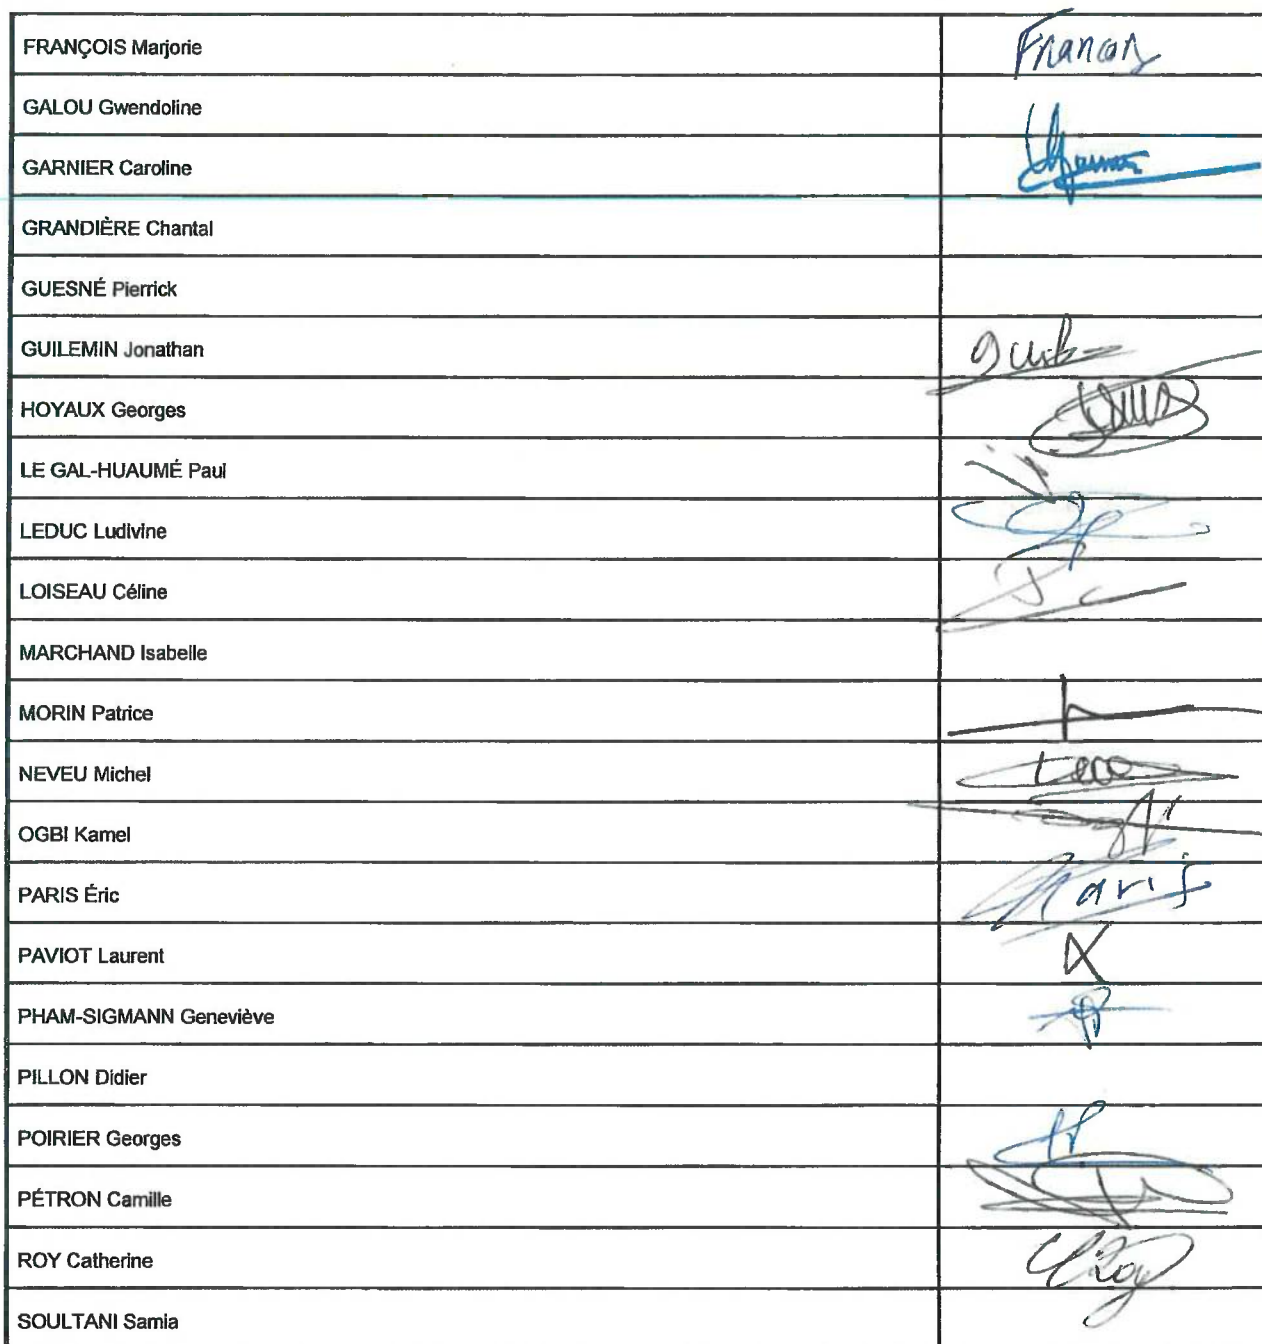 FRANÇOIS Marjorie
GALOU Gwendoline
GARNIER Caroline
GRANDIÈRE Chantal
GUESNÉ Pierrick
GUILEMIN Jonathan
HOYAUX Georges
LE GAL-HUAUMÉ Paul
LEDUC Ludivine
LOISEAU Céline
MARCHAND Isabelle
MORIN Patrice
NEVEU Michel
OGBI Kamel
PARIS Éric
PAVIOT Laurent
PHAM-SIGMANN Geneviève
PILLON Didier
POIRIER Georges
PÉTRON Camille
ROY Catherine
SOULTANI Samia